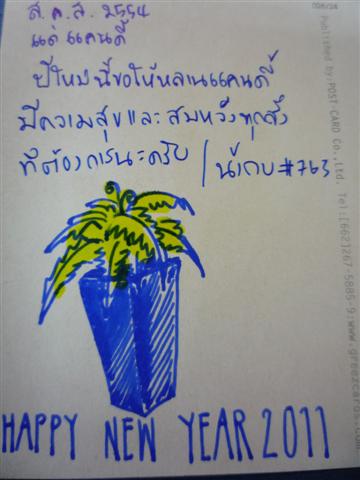 ส.ค.ส. 2554
แด่ แคนดี้
ปีใหม่นี้ขอให้หลานแคนดี้
มีความสุขและสมหวังทุกสิ่ง
ที่ต้องการนะครับ / น้ากบ #763
HAPPY NEW YEAR 2011
Published by: POST CARD Co.,Ltd. Tel: (662)267-5885-9